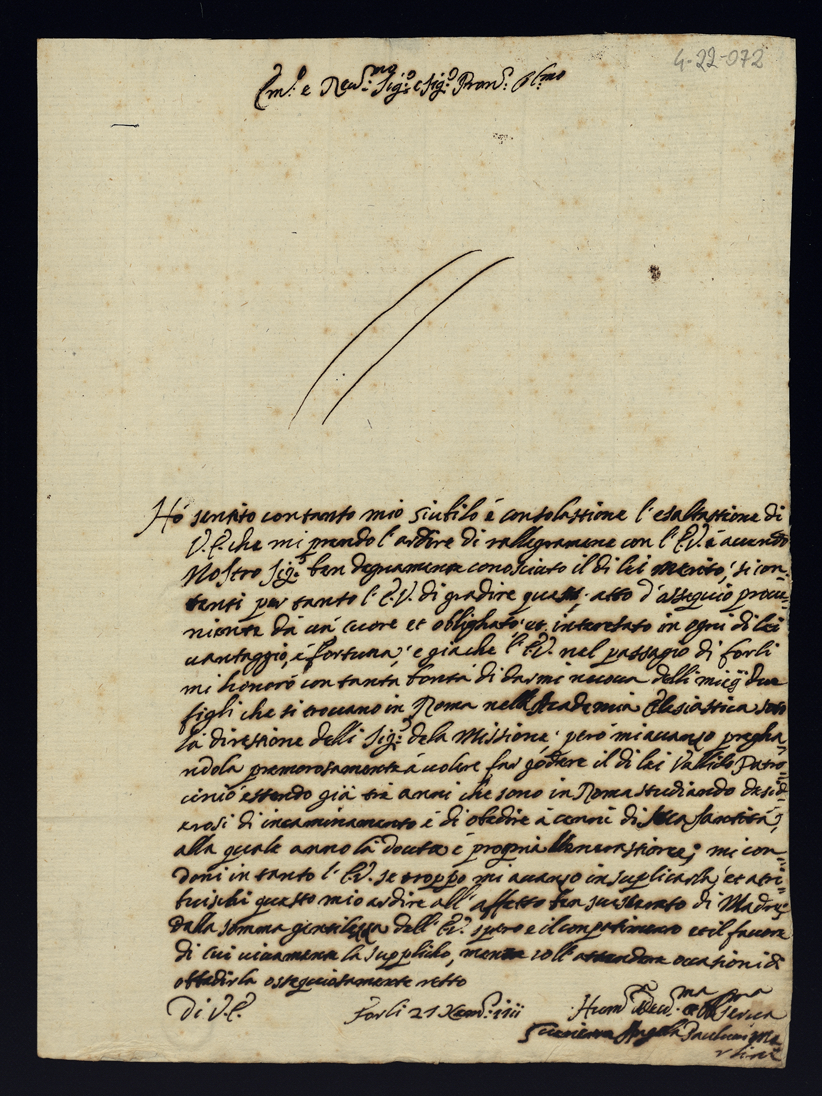 4-22-072
Em.º e Reu.mo Sig.º e Sig.º Pron.
Hó sentito con tanto mio Giubilo é consolassione l'esaltassione di
V.E. che mi prendo l'ardire di rallegramene con l'E.V. é auendo
Nostro Sig.r ben degnamente conosciuto il di lei merito; si con=
tenti per tanto l'E.V. di gradire atto d'assequio proue=
niente dá un' cuore et obblighato et interesato in ogni di lei
uantaggio, é Fortuna; e giache l'E.V. nel passagio di Forlì
mi honoró con tanta bontá di darmi nuoua delli mieij due
figli che si trouano in Roma nell'Academia Eclesiastica soto
lá diressione delli Sig.ri dela Missione; peró mi auanso pregha
ndola premorosamente á uolere far godere il di lei Vallido Patro=
cinio essendo giá tré anni che sono in Roma studiando desid=
erosi di incaminamento é di obedire á cenni di Sua Santitá;
alla quale anno lá douta é propria Venerassione; mi con=
doni in tanto l'E.V. se troppo mi auanso in suplicarla, et atri=
buischi questo mio ardire all'affetto ben di Madre
Dalla somma gentilezza dell'E.V. spero e il compatimento et il fauore
di cui uiuamente la supplicho, mentre coll' occasioni di
obbedirla ossequiosamente resto
Di V.E. Forlì 21 Hum.ma Deu.ma Serua
Angela Paulucci Ma